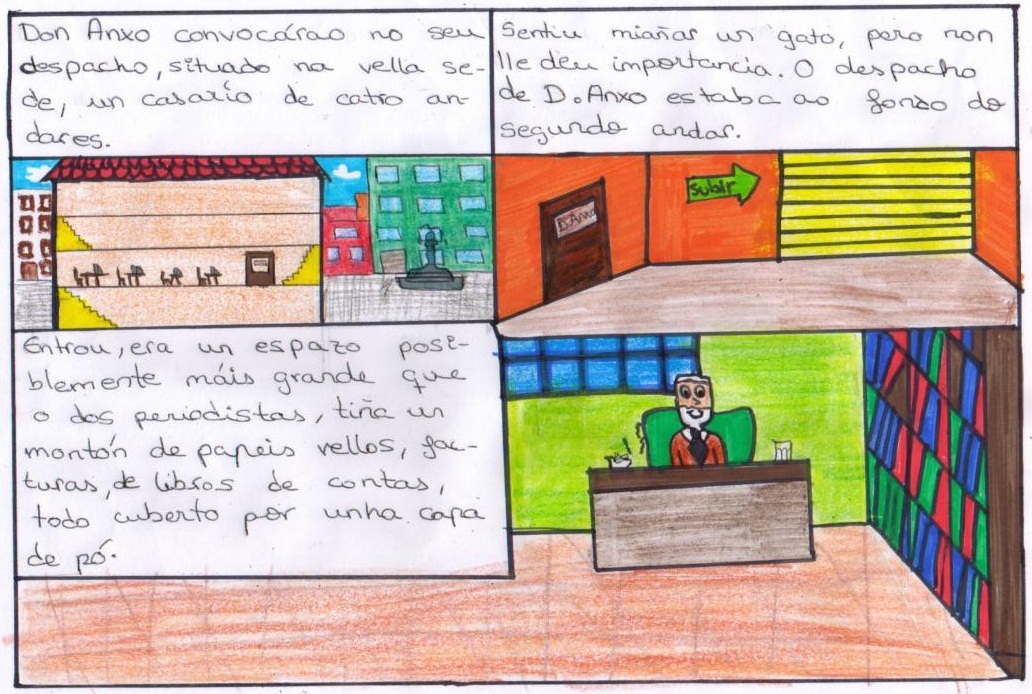 Don Anxo convocárao no seu
despacho, situado na vella se-
de, un casarío de catro an-
dares.
Sentiu miañar un gato, pero non
lle deu importancia. O despacho
de D. Anxo estaba ao fondo do
segundo andar.
D. Anxo
Subir
Entrou, era un espazo posi-
blemente máis grande que
o dos periodistas, tiña un
montón de papeis vellos, fac-
turas, de libros de contas,
todo cuberto por unha capa
de pó.